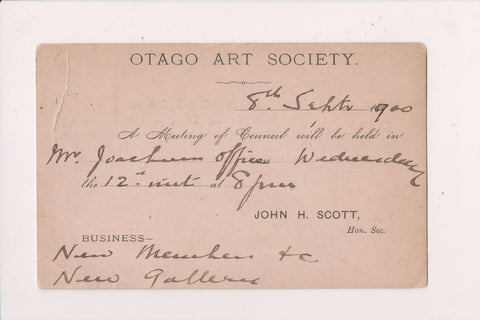 OTAGO ART SOCIETY.
8th Septr 1900
A Meeting of Council will be held in
Mr. Joachims office Wednesday
the 12th inst at 8 pm
JOHN H. SCOTT,
Hon. Sec.
BUSINESS—
New Members &c
New Gallery